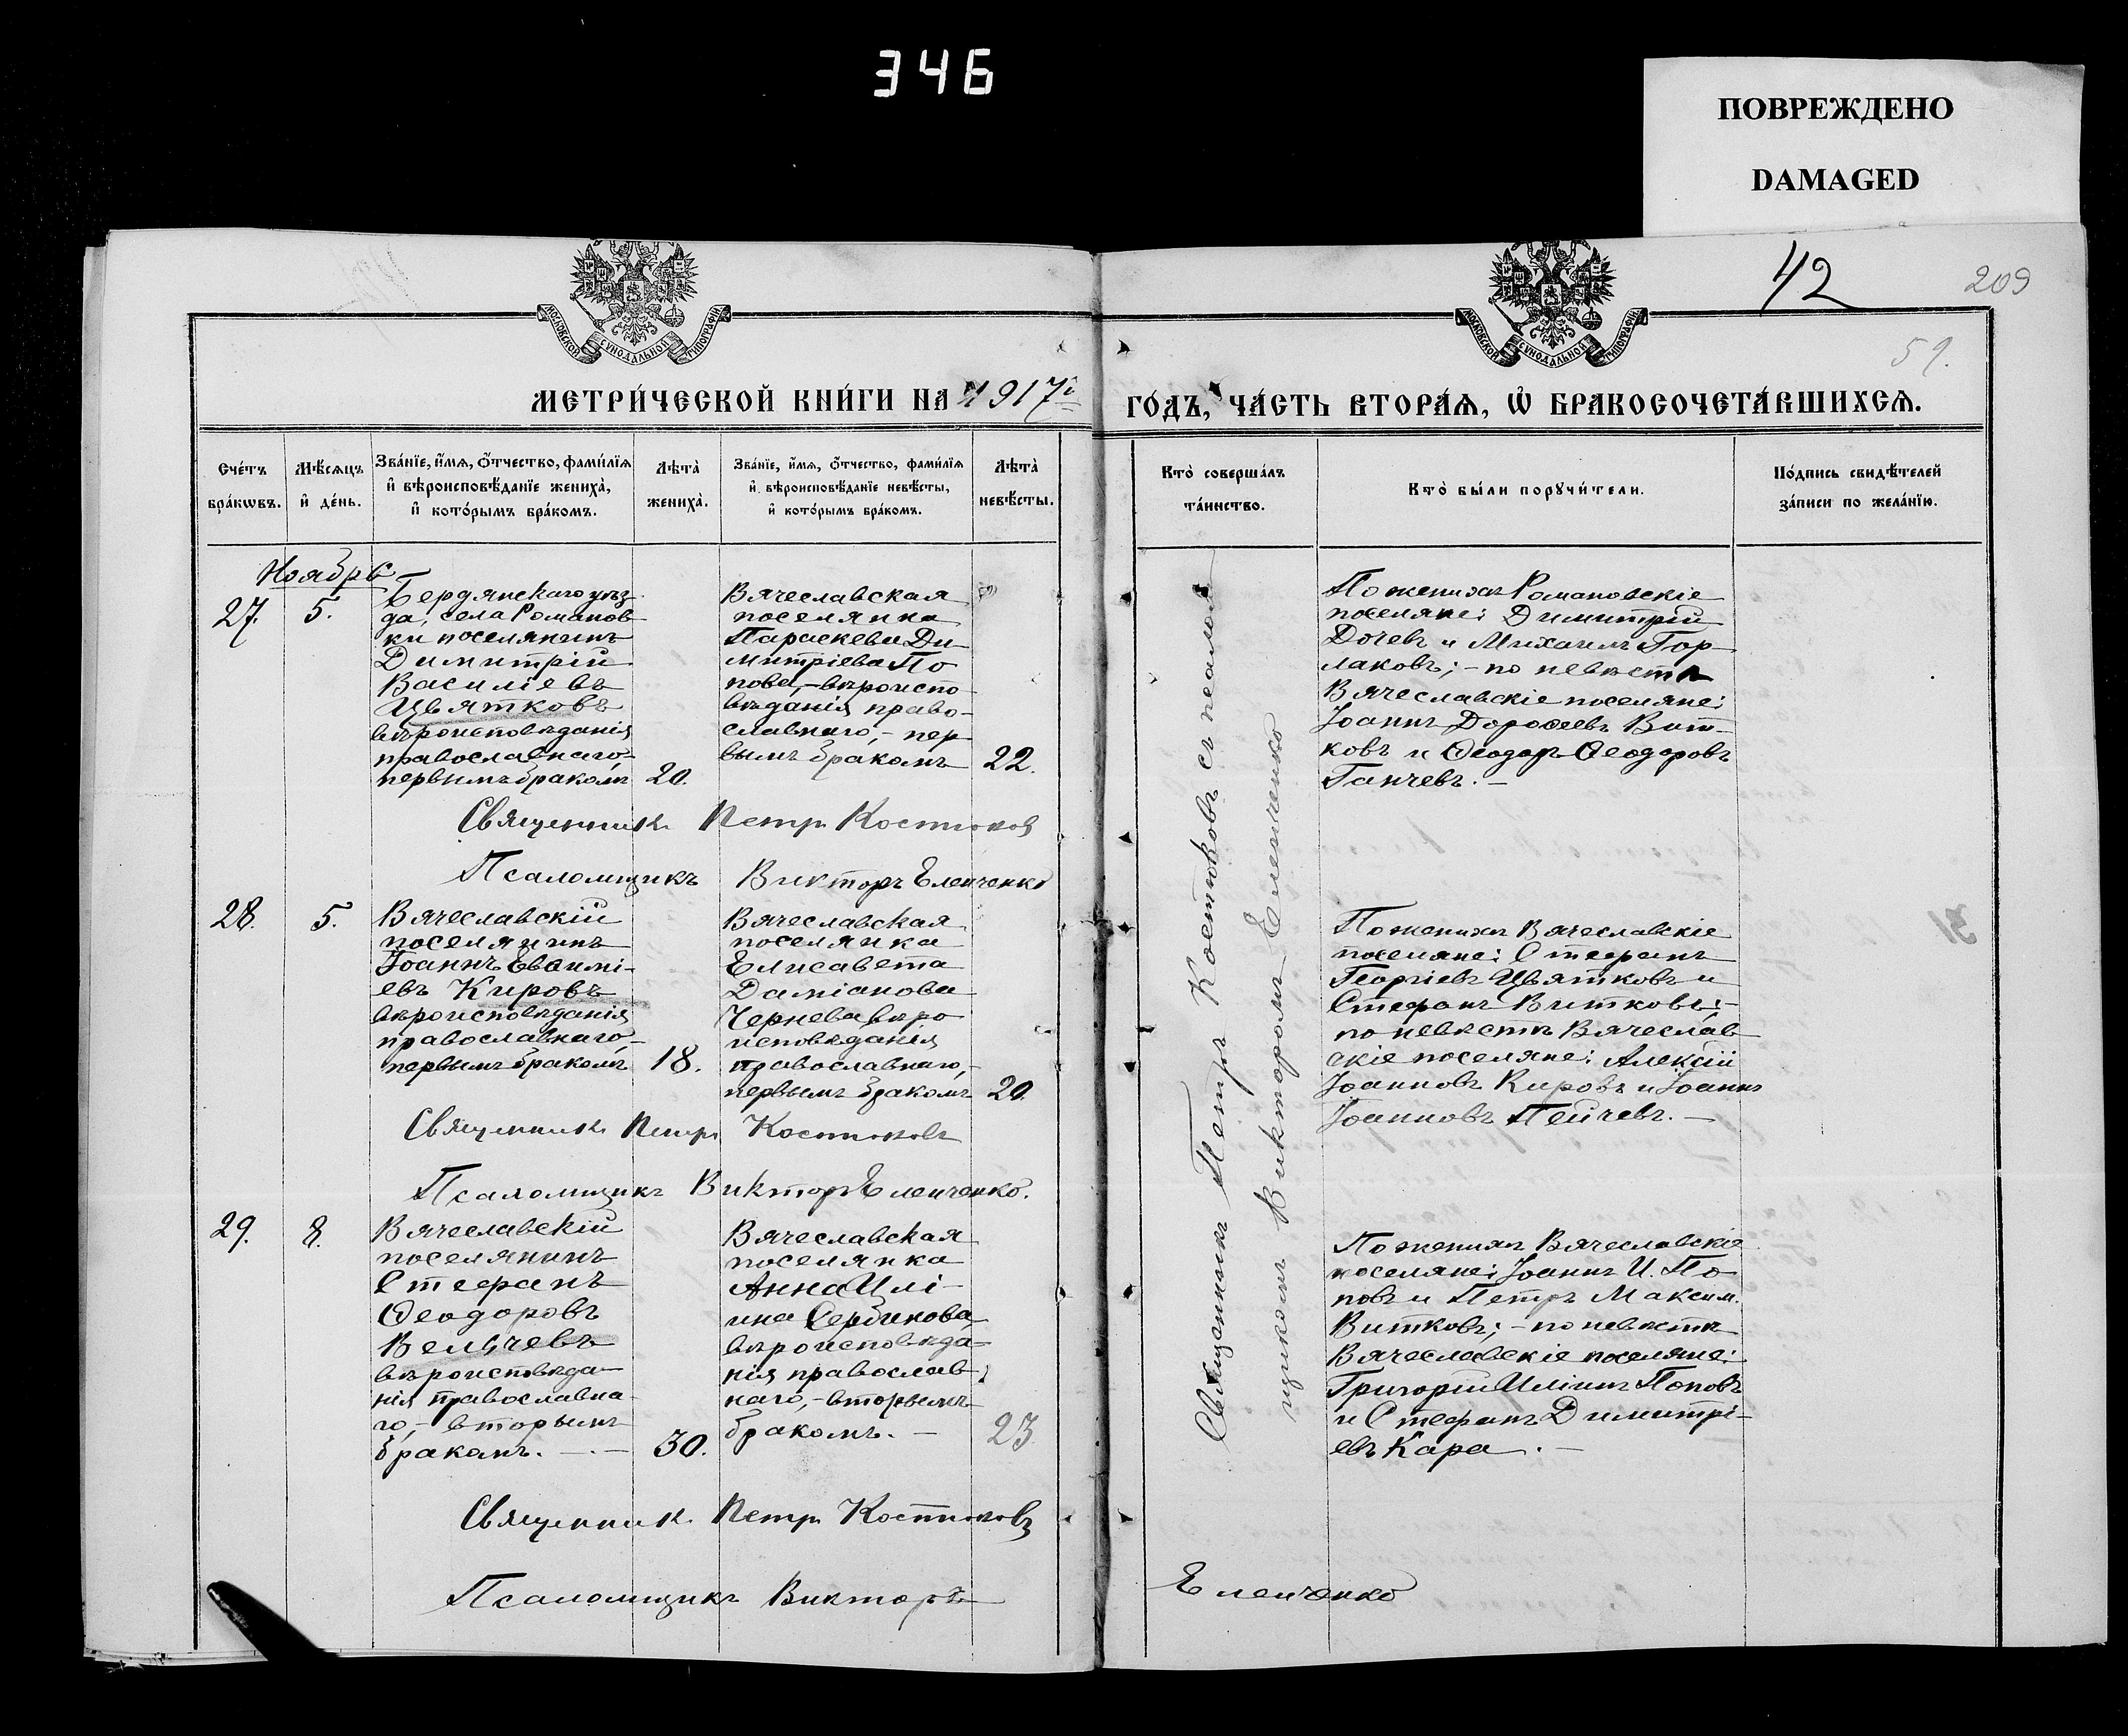 346
ПОВРЕЖДЕНО
DAMAGED
42
209
51.
МОСКОВСКОЙ СѴНОДАЛЬНОЙ ТИПОГРАФІИ
МОСКОВСКОЙ СѴНОДАЛЬНОЙ ТИПОГРАФІИ
МЕТРИ́ЧЕСКОЙ КНИ́ГИ НА 1917 г
ГО́ДЪ, ЧА́СТЬ ВТОРА́Ѧ, Ѡ҆ БРАКОСОЧЕТА́ВШИХСѦ.
Сче́тъ
бра́кѡвъ.
Мѣ́сѧцъ
и҆ де́нь.
Зва́нїе, и҆́мѧ, ѻ҆́тчество, фами́лїѧ
и҆ вѣроисповѣ́данїе жениха̀,
и҆ кото́рымъ бра́комъ.
Лѣта̀
жениха̀.
Зва́нїе, и҆́мѧ, ѻ҆́тчество, фами́лїѧ
и҆ вѣроисповѣ́данїе невѣ́сты,
и҆ кото́рымъ бра́комъ.
Лѣта̀
невѣ́сты.
Кто̀ соверша́лъ
та́инство.
Кто̀ бы́ли порꙋчи́тели.
По́дпись свидѣ́телей
за́писи по жела́нїю.
Ноябрь
27.
5.
Бердянскаго уѣз-
да, села Романов-
ки поселянинъ
Димитрій
Василіевъ
Цвятковъ
вѣроисповѣданія
православнаго,-
первымъ бракомъ
20.
Вячеславская
поселянка
Параскева Ди-
митріева По
пова,- вѣроиспо-
вѣданія право-
славнаго,- пер
вымъ бракомъ
22.
По женихѣ Романовскіе
поселяне: Димитрій
Дочевъ и Михаилъ Гор-
лаковъ;- по невѣстѣ
Вячеславскіе поселяне:
Іоаннъ Дороѳеевъ Вит-
ковъ и Ѳеодоръ Ѳеодоровъ
Ганчевъ.-
Священникъ Петръ Костюковъ
Псаломщикъ Викторъ Еленченко
28.
5.
Вячеславскій
поселянинъ
Іоаннъ Евѳимі-
евъ Кировъ
вѣроисповѣданія
православнаго,-
первымъ бракомъ
18.
Вячеславская
поселянка
Елисавета
Даміанова
Чернева вѣро
исповѣданія
православнаго,-
первымъ бракомъ
20.
По женихѣ Вячеславскіе
поселяне: Стефанъ
Георгіевъ Цвятковъ и
Стефанъ Витковъ;-
по невѣстѣ Вячеслав
скіе поселяне: Алексій
Іоанновъ Кировъ и Іоаннъ
Іоанновъ Пейчевъ.-
Священникъ Петръ Костюковъ
Псаломщикъ Викторъ Еленченко.
29.
8.
Вячеславскій
поселянинъ
Стефанъ
Ѳеодоровъ
Вельчевъ
вѣроисповѣда-
нія православна-
го,- вторымъ
бракомъ.-
30.
Вячеславская
поселянка
Анна Илі-
ина Сербинова
вѣроисповѣда-
нія православ-
наго,- вторымъ
бракомъ.-
23
По женихѣ Вячеславскіе
поселяне: Іоаннъ И. По
повъ и Петръ Максим.
Витковъ;- по невѣстѣ
Вячеславскіе поселяне:
Григорій Иліинъ Поповъ
и Стефанъ Димитрі-
евъ Кара.-
Священникъ Петръ Костюковъ
Псаломщикъ Викторъ
Еленченко
Священникъ Петръ Костюковъ съ псалом-
щикомъ Викторомъ Еленченко